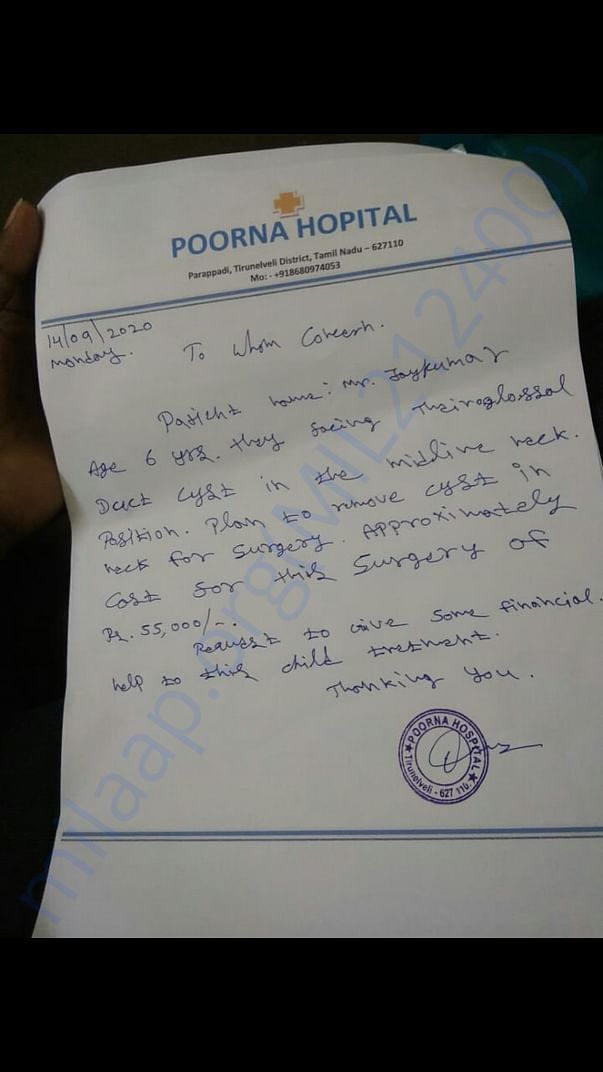 POORNA HOPITAL
Parappadi, Tirunelveli District, Tamil Nadu – 627110
Mo: - +918680974053
14/09/2020
monday.
To Whom Concern.
Patient name: Mr. Jaykumar
Age 6 yrs. they facing Thairoglossal
Duct cyst in the midline neck.
Position. Plan to remove cyst in
neck for surgery. Approximately
cost for this surgery of
Rs. 55,000/-.
Request to give some financial.
help to this child tretment.
Thanking you.
POORNA HOSPITAL
Tirunelveli - 627 110.
milaap.org(MIL212400)